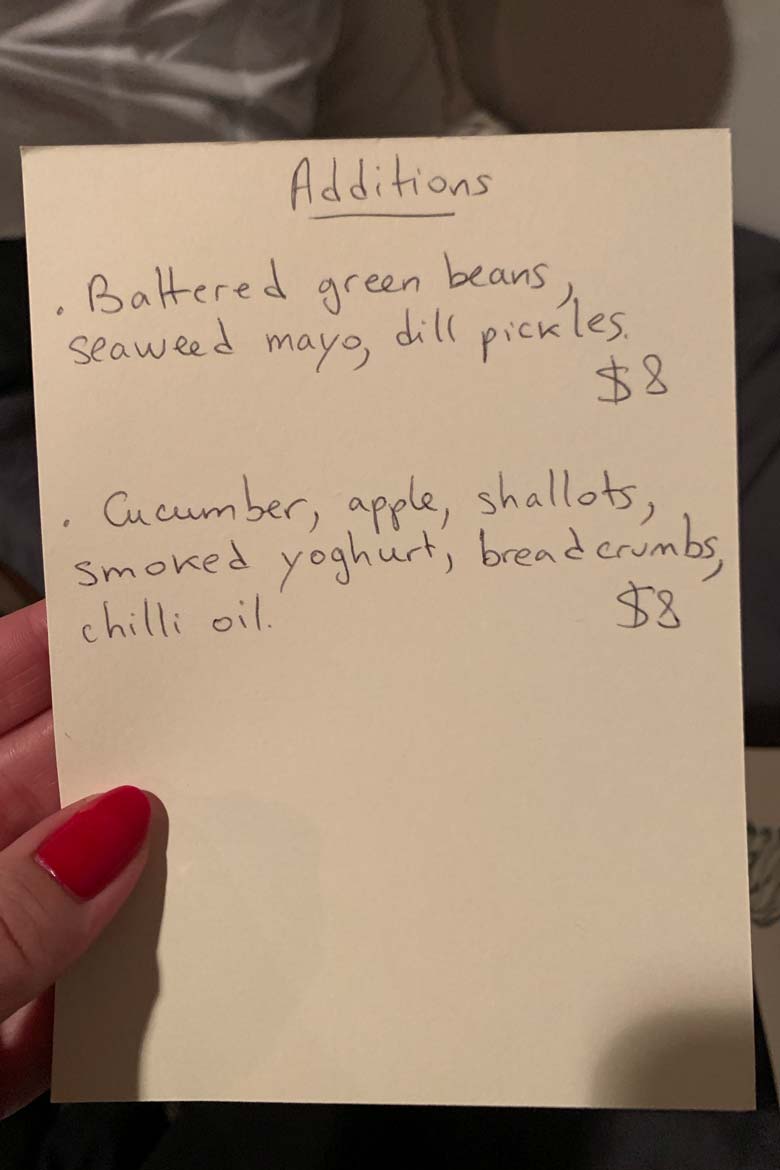 Additions
. Battered green beans,
seaweed mayo, dill pickles.
$8
. Cucumber, apple, shallots,
smoked yoghurt, breadcrumbs,
chilli oil. $8